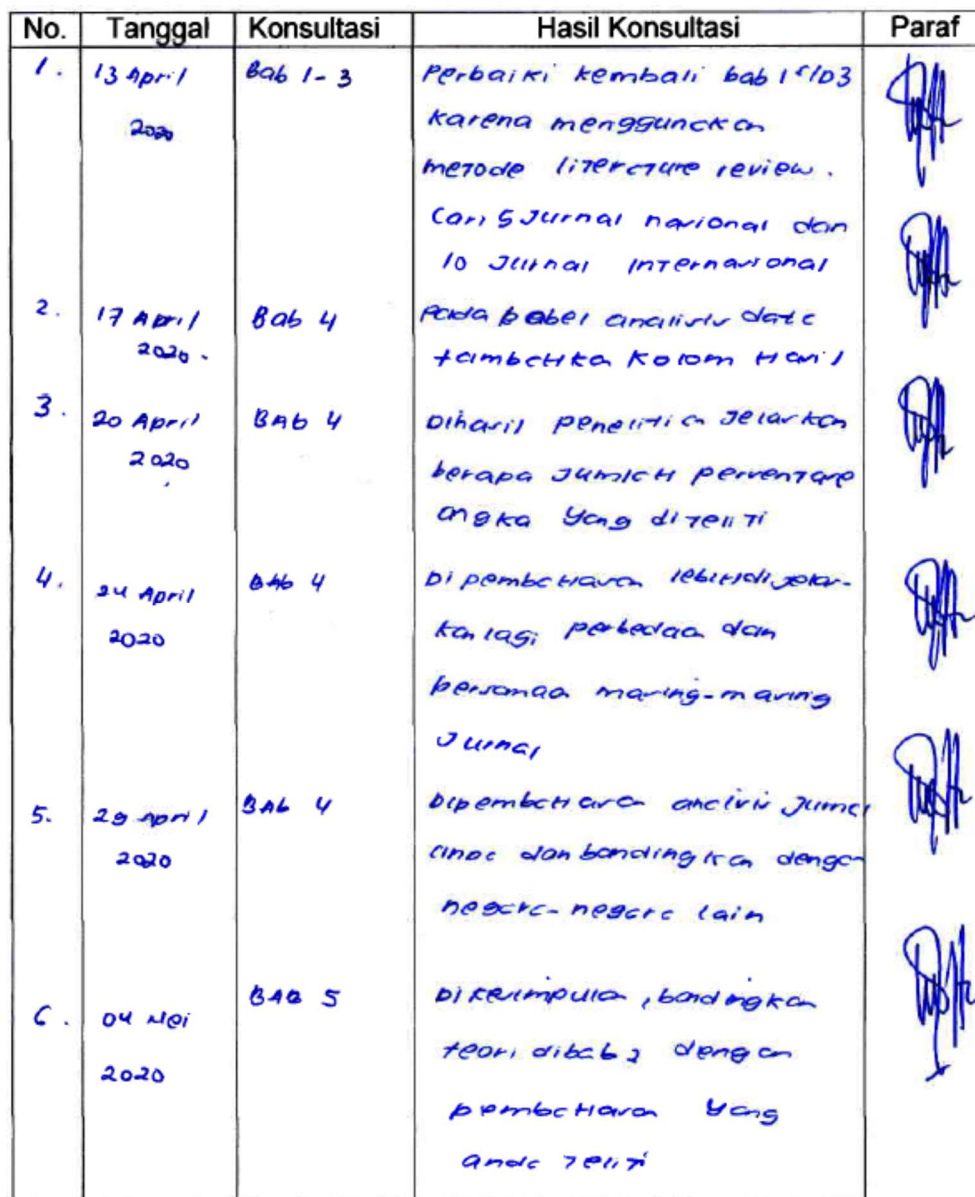 No. Tanggal Konsultasi Hasil Konsultasi Paraf
1. 13 April Bab 1-3 Perbaiki kembali bab 1 s/d 3
2020 karena menggunakan
metode literature review.
Cari 5 Jurnal nasional dan
10 Jurnal Internasional
2. 17 April Bab 4 Pada babel analisis data
2020. tambahka Kolom Hasil
3. 20 April BAb 4 Dihasil penelitian Jelaskan
2020 berapa Jumlah persentase
angka yang diteliti
4. 24 April BAb 4 Di pembahasan lebih dijelas-
2020 kan lagi perbedaa dan
persamaa masing-masing
Jurnal
5. 29 April BAb 4 Dipembahasan analisis Jurnal
2020 anda dan bandingkan dengan
negara-negara lain
6. 04 Mei BAB 5 Di kesimpulan, bandingkan
2020 teori dibab 2 dengan
pembahasan yang
anda teliti